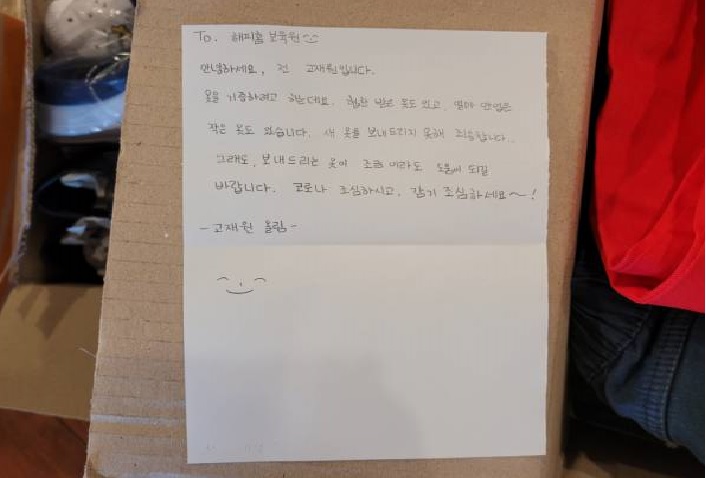 To. 해피홈 보육원
안녕하세요, 전 고재원입니다.
옷을 기증하려고 하는데요. 험한 옷도 있고, 몇번 안입은
작은 옷도 있습니다. 새 옷을 보내드리지 못해 죄송합니다.
그래도, 보내드리는 옷이 조금이라도 도움이 되길
바랍니다. 코로나 조심하시고, 감기 조심하세요~!
-고재원 올림-